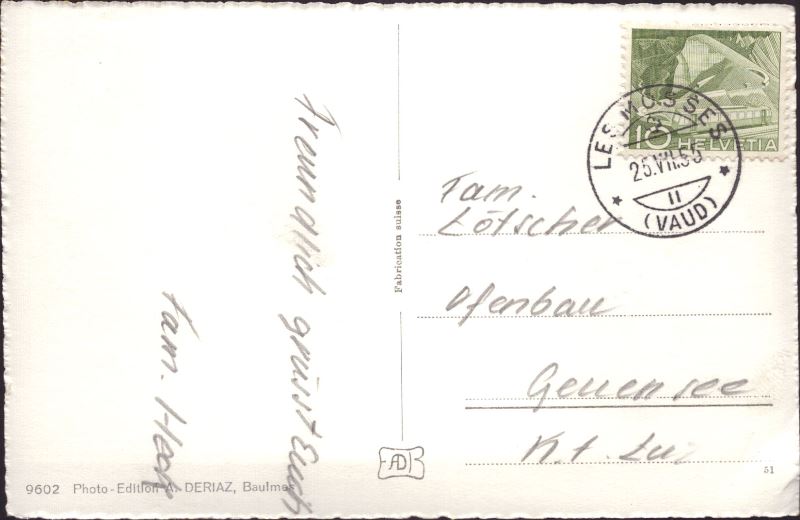 10 HELVETIA
LES MOSSES
25.VII.55
11
(VAUD)
Fam.
Lötscher
Ofenbau
Geuensee
Kt. Luz
Freundlich grüsst Euch
Fam.
Fabrication suisse
AD
9602 Photo-Edition A. DERIAZ, Baulmes
51